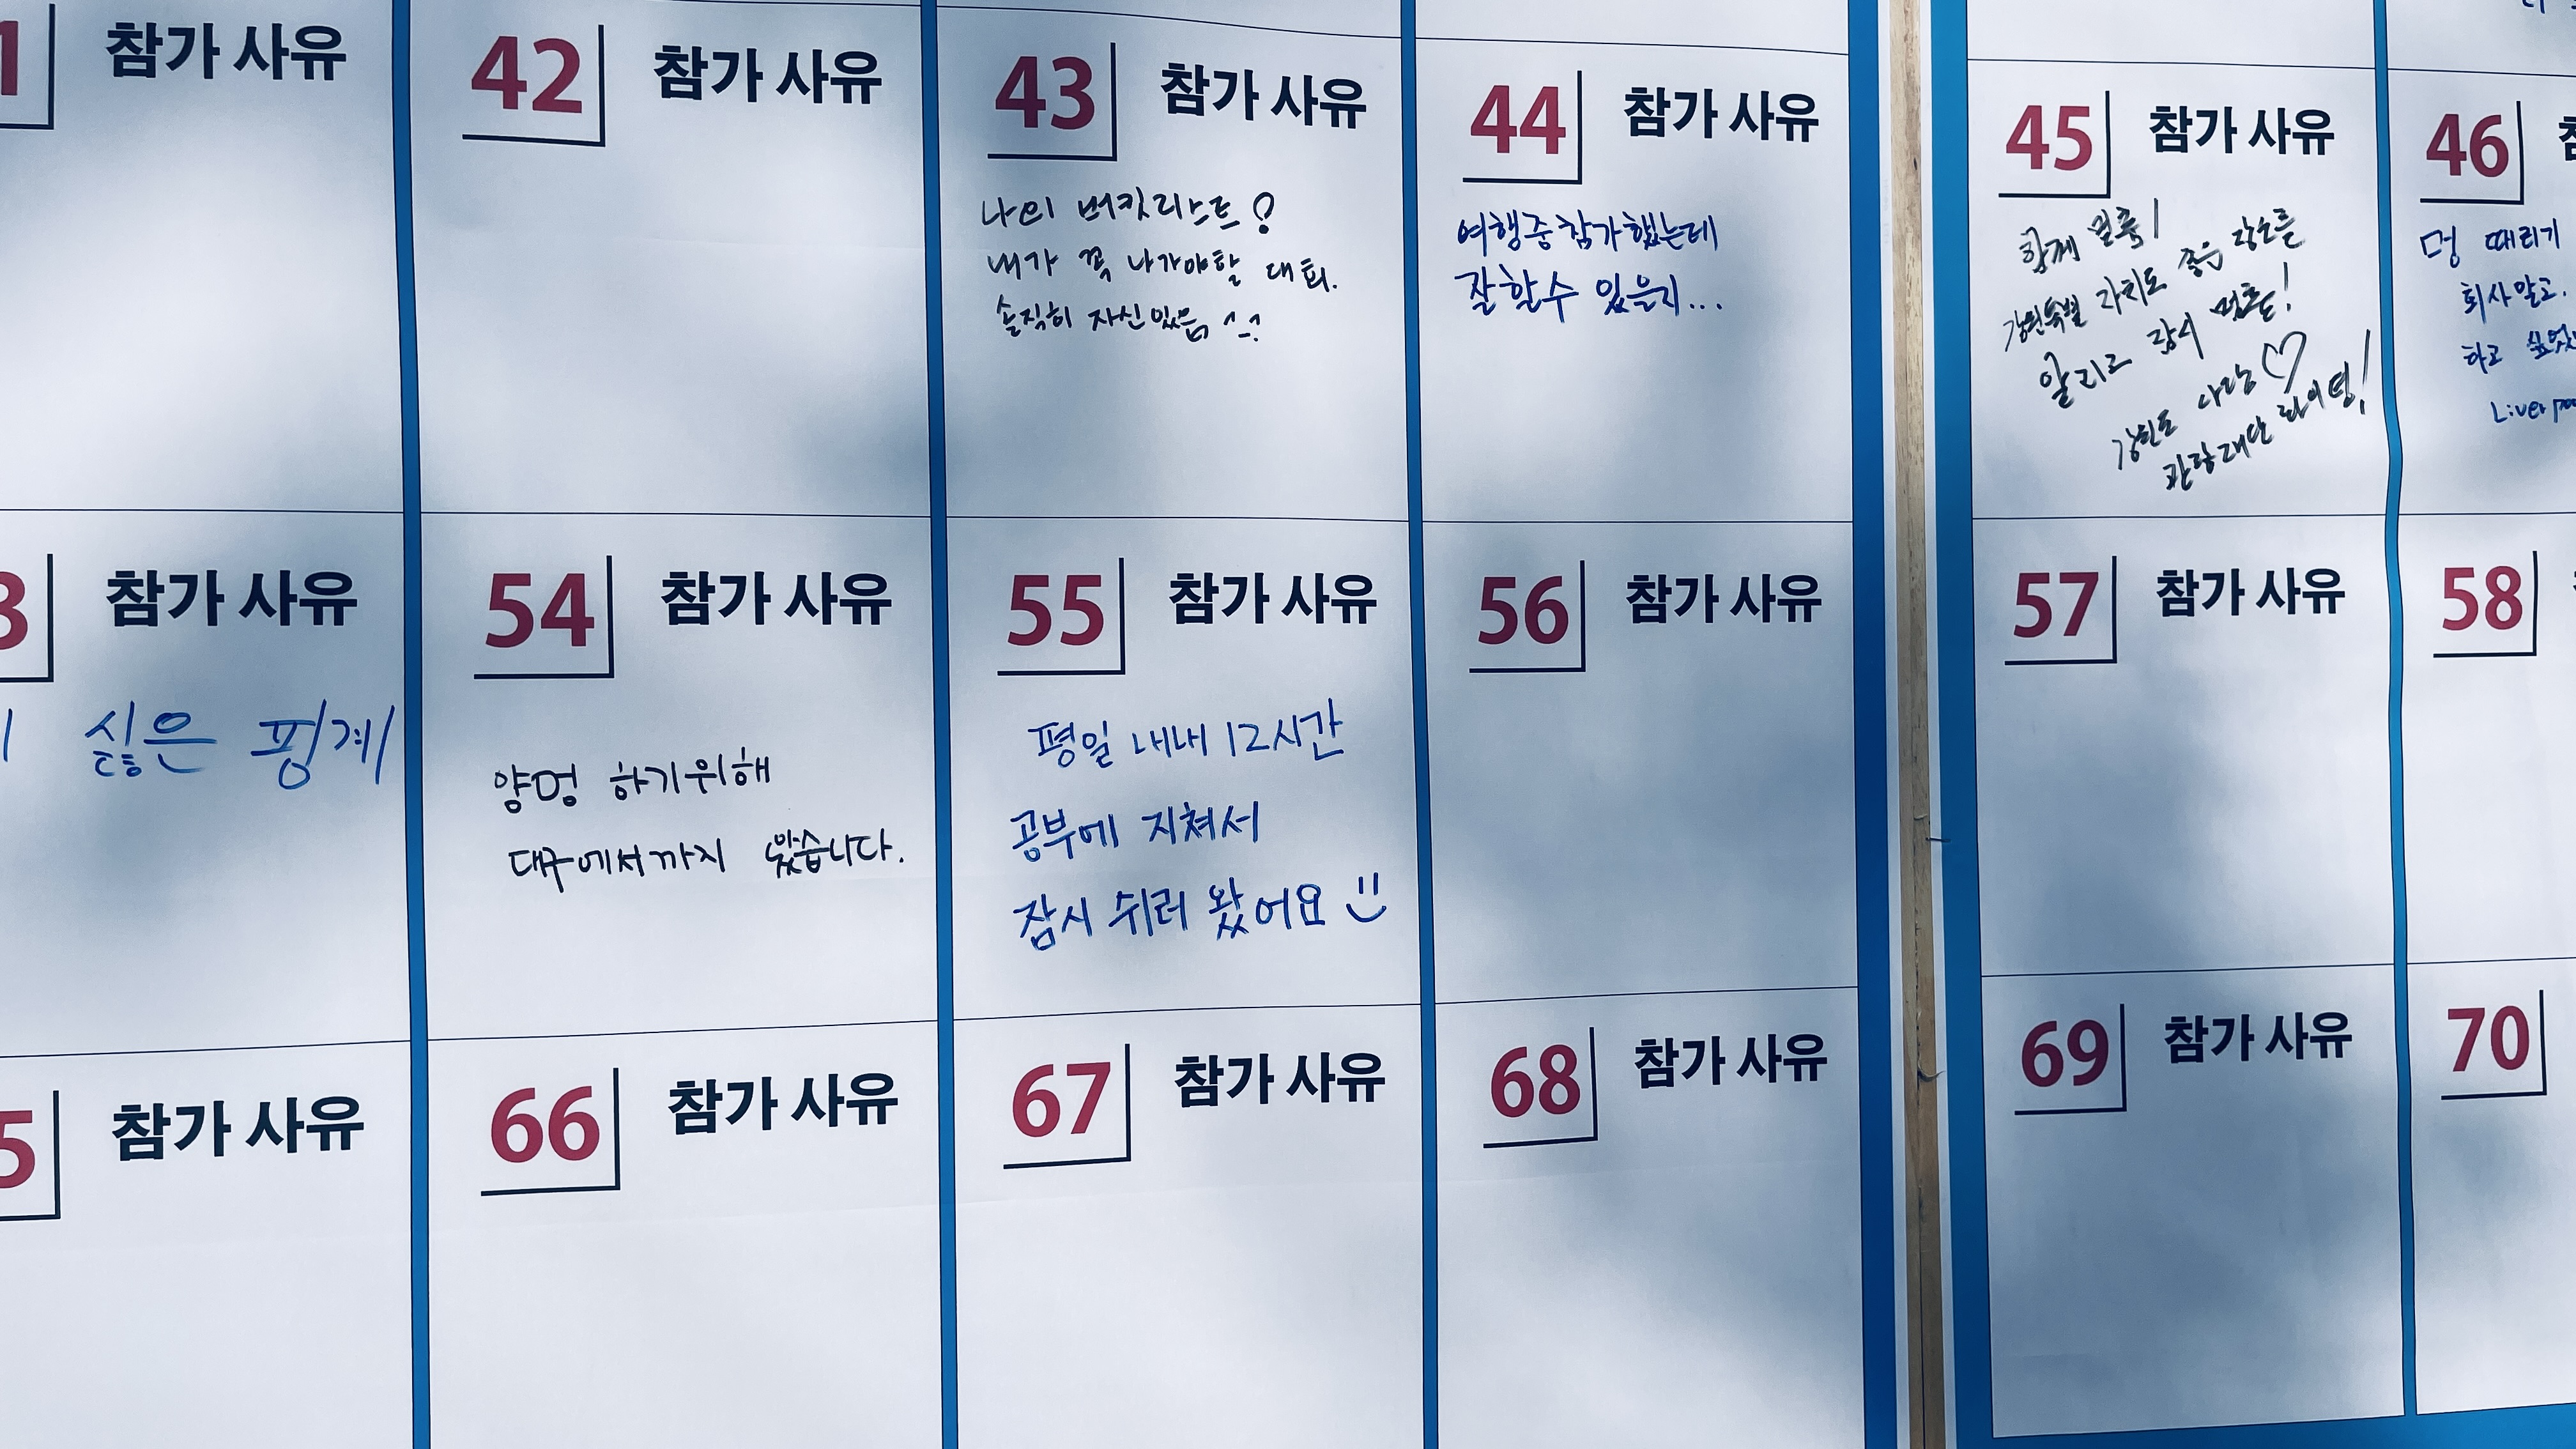 참가 사유
42 참가 사유
43 참가 사유
나의 버킷리스트!
내가 꼭 나가야할 대회.
솔직히 자신있음 ^-^
44 참가 사유
여행중 참가했는데
잘할수 있을지...
45 참가 사유
함께 멈춤!
강원특별자치도 좋은 장소를
알리고 잠시 멈춤!
강원도 사랑♡
관광재단 화이팅!
46
멍 때리기
회사말고.
하고
참가 사유
싫은 핑계
54 참가 사유
양멍 하기위해
대구에서까지 왔습니다.
55 참가 사유
평일 내내 12시간
공부에 지쳐서
잠시 쉬러 왔어요
56 참가 사유
57 참가 사유
58
참가 사유
66 참가 사유
67 참가 사유
68 참가 사유
69 참가 사유
70